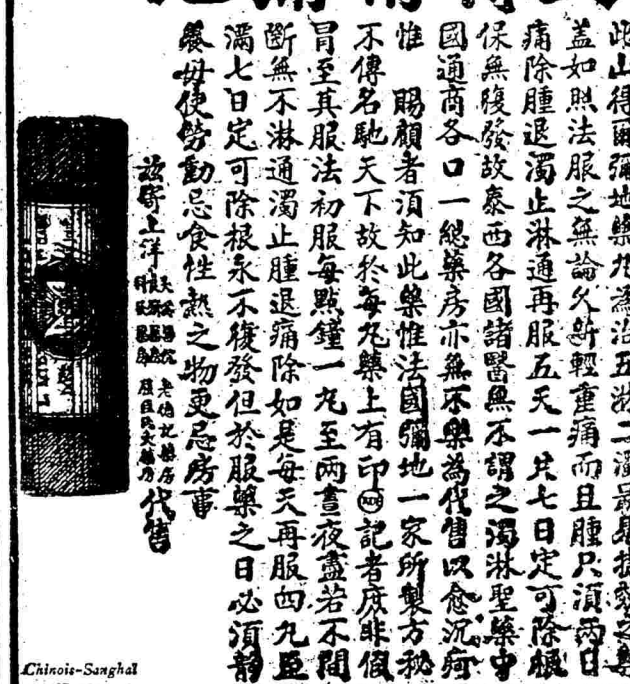 此山得爾彌地藥丸為治五淋二濁最
蓋如照法服之無論久新輕重痛而且腫只須兩日
痛除腫退濁止淋通再服五天一共七日定可除根
保無復發故泰西各國諸醫無不謂之濁淋聖藥中
國通商各口一總藥房亦無不樂為代售以愈沉疴
惟 賜顧者須知此藥惟法國彌地一家所製方秘
不傳名馳天下故於每丸藥上有印記者庶非假
冒至其服法初服每點鐘一丸至兩晝夜盡若不間
斷無不淋通濁止腫退痛除如是每天再服四丸
滿七日定可除根永不復發但於服藥之日必須靜
養毋使勞動忌食性熱之物更忌房事
茲寄上洋 老德記藥房 屈臣氏大藥房 代售
Chinois-Sanghaï